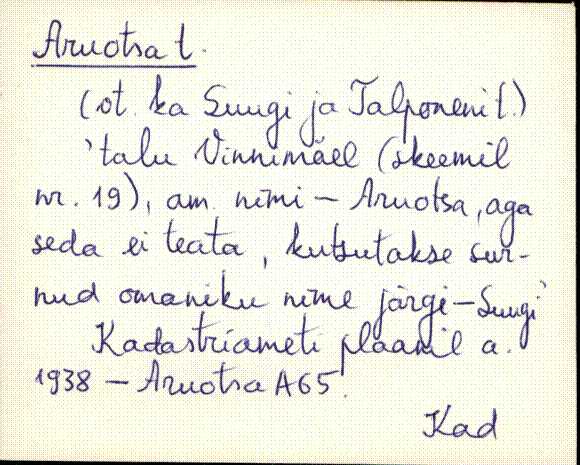 Aruotsa t.
(vt. ka Suugi ja Talponeni t.)
'talu Vinnimäel (skeemil
nr. 19), am. nimi – Aruotsa, aga
seda ei teata, kutsutakse sur-
nud omaniku nime järgi – Suugi'
Kadastriameti plaanil a.
1938 – Aruotsa A65.
Kad